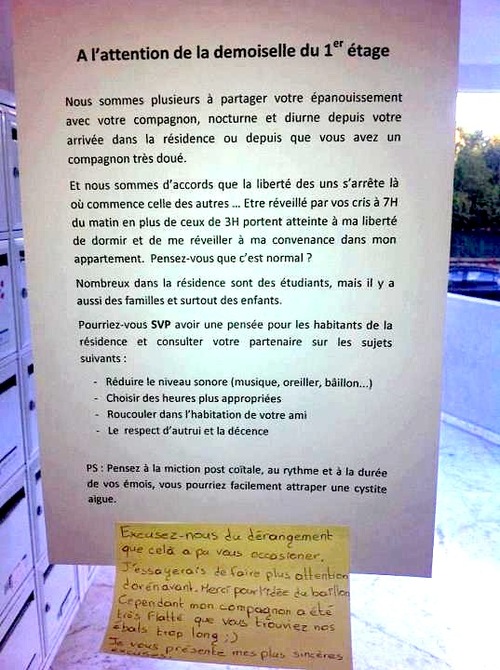 A l'attention de la demoiselle du 1er étage
Nous sommes plusieurs à partager votre épanouissement
avec votre compagnon, nocturne et diurne depuis votre
arrivée dans la résidence ou depuis que vous avez un
compagnon très doué.
Et nous sommes d'accords que la liberté des uns s'arrête là
où commence celle des autres ... Etre réveillé par vos cris à 7H
du matin en plus de ceux de 3H portent atteinte à ma liberté
de dormir et de me réveiller à ma convenance dans mon
appartement. Pensez-vous que c'est normal ?
Nombreux dans la résidence sont des étudiants, mais il y a
aussi des familles et surtout des enfants.
Pourriez-vous SVP avoir une pensée pour les habitants de la
résidence et consulter votre partenaire sur les sujets
suivants :
- Réduire le niveau sonore (musique, oreiller, bâillon...)
- Choisir des heures plus appropriées
- Roucouler dans l'habitation de votre ami
- Le respect d'autrui et la décence
PS : Pensez à la miction post coïtale, au rythme et à la durée
de vos émois, vous pourriez facilement attraper une cystite
aigue.
Excusez-nous du dérangement
que celà a pu vous occasioner.
J'essayerais de faire plus attention
dorénavant. Merci pour l'idée du baillon
Cependant mon compagnon a été
très flatté que vous trouviez nos
ébats trop long ;)
Je vous présente mes plus sincères
excuses